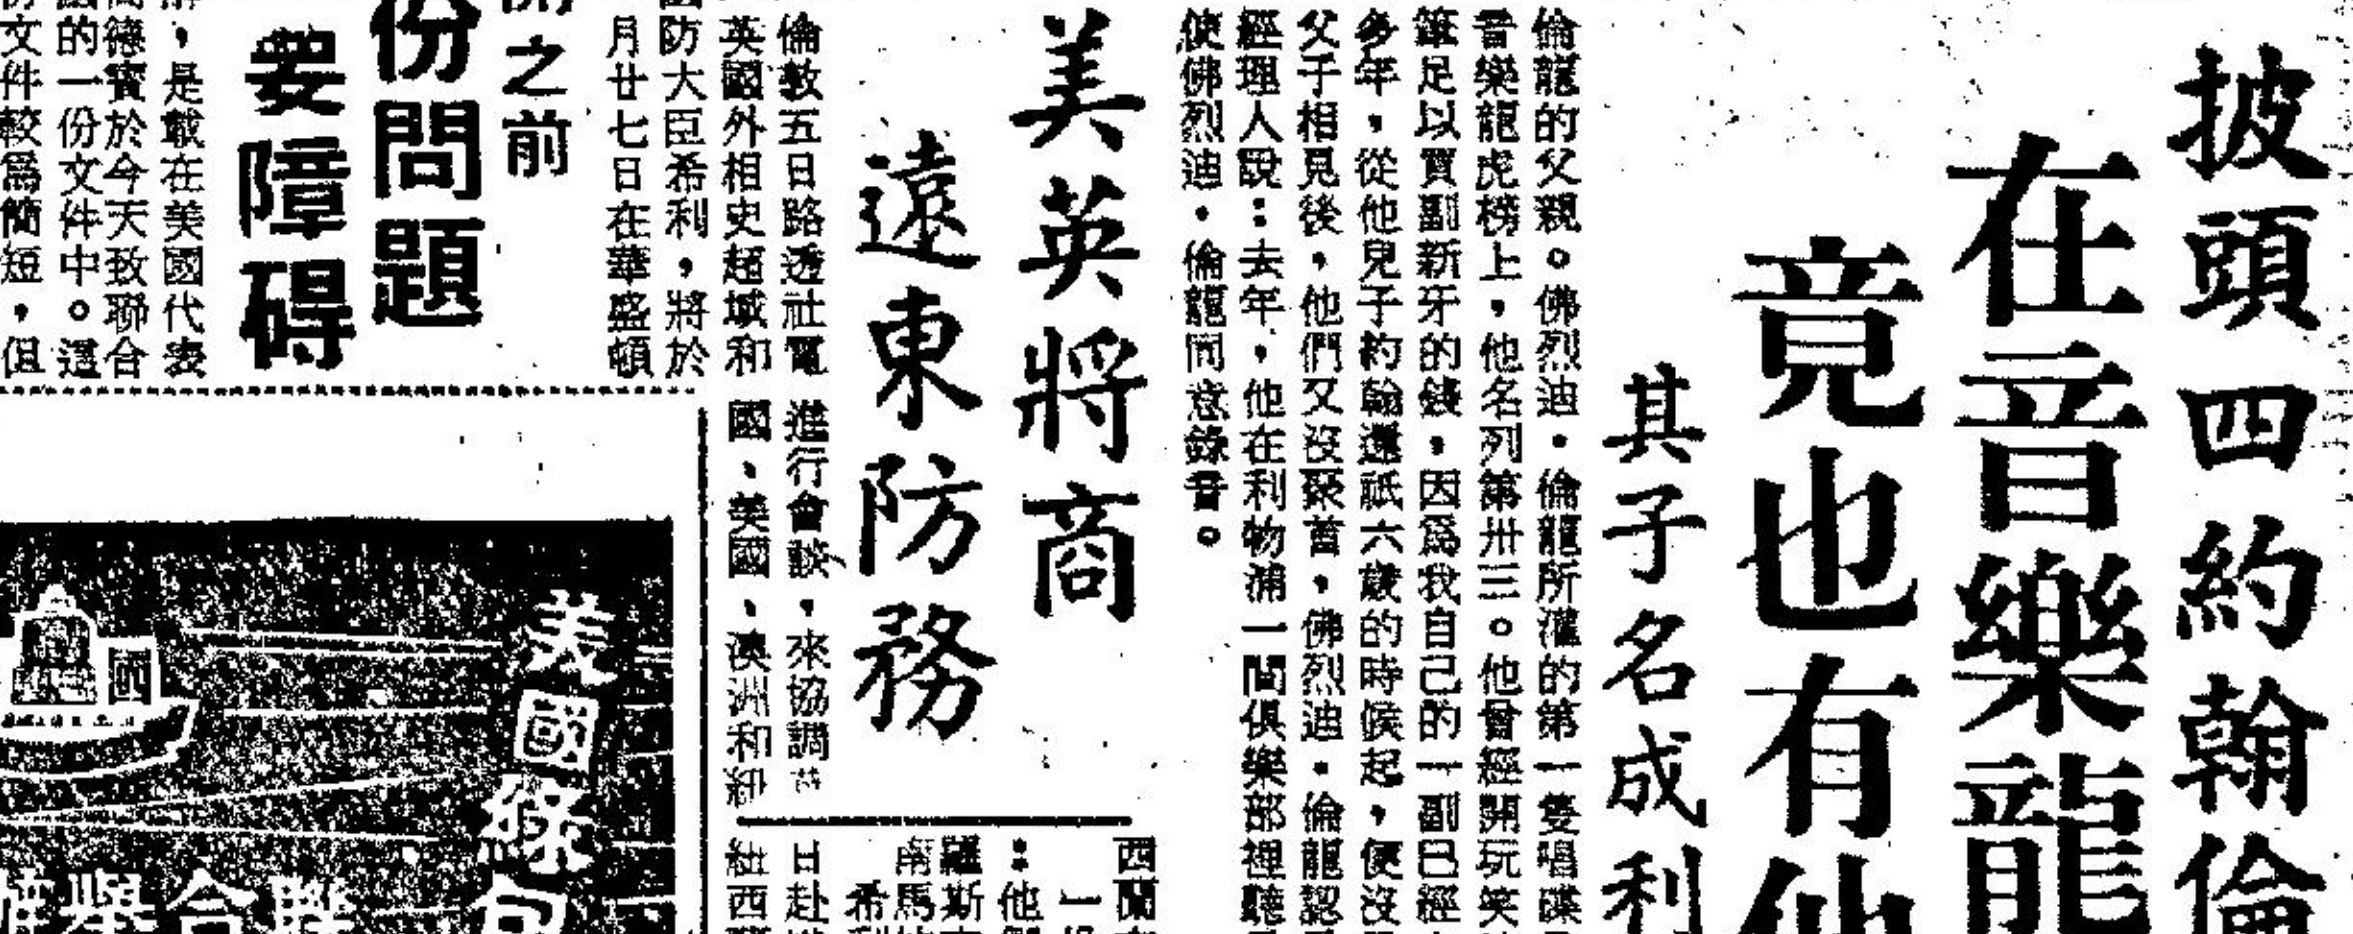 披頭四約翰倫
在音樂龍
竟也有他
其子名成利
倫龍的父親。佛烈迪・倫龍所灌的第一隻唱碟
音樂龍虎榜上，他名列第卅三。他曾經開玩笑
筆足以買副新牙的錢，因爲我自己的一副已經
多年，從他兒子約翰還祇六歲的時候起，便沒
父子相見後，他們又沒聚首，佛烈迪・倫龍認
經理人說：去年，他在利物浦一間俱樂部裡聽
使佛烈迪・倫龍同意錄音。
美英將商
遠東防務
倫敦五日路透社電
英國外相史超域和
國防大臣希利，將於
月廿七日在華盛頓
進行會談，來協調英
國、美國、澳洲和紐
西蘭
他
羅斯
南馬
希利
日赴
紐西
開之前
份問題
要障碍
解，是載在美國代表
高德寶於今天致聯合
的一份文件中。這
文件較爲簡短，但
美國
國